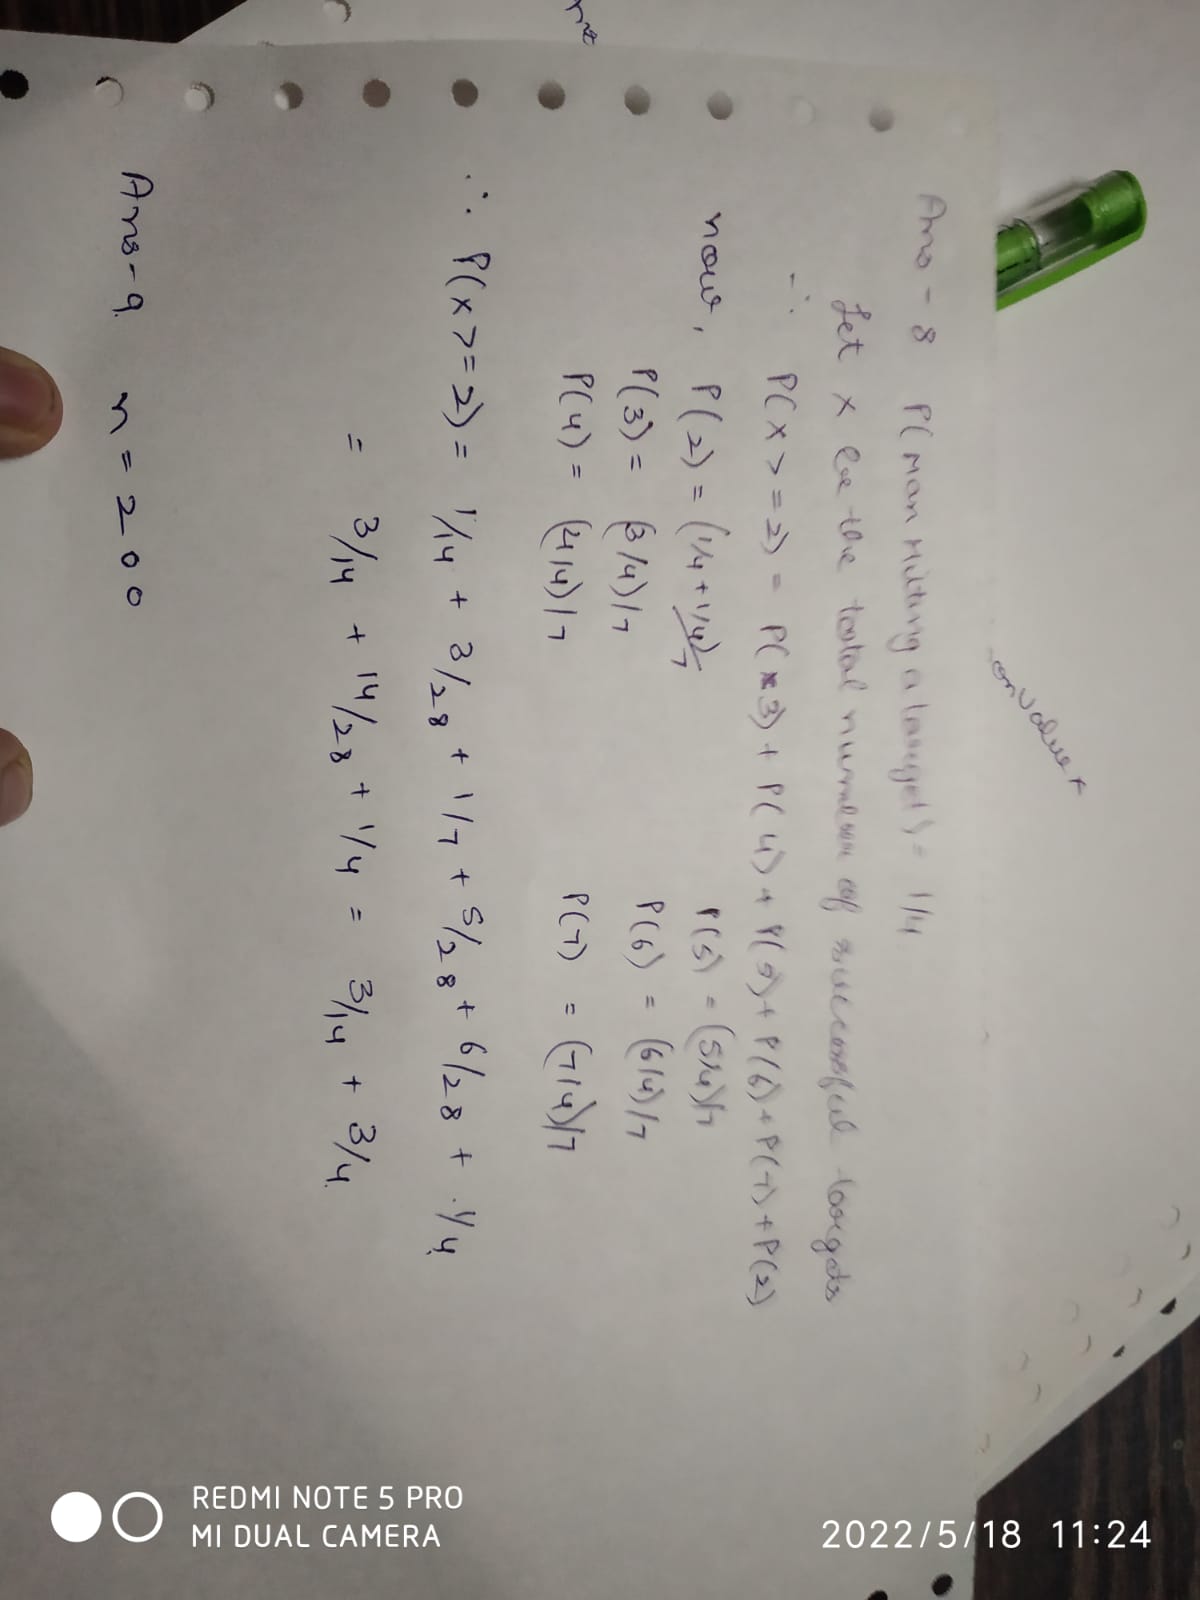 on value x
Ans - 8 P(Man Hitting a target) = 1/4
Let x be the total number of successful targets
∴ P(x >= 2) = P(3) + P(4) + P(5) + P(6) + P(7) + P(2)
now, P(2) = (1/4 + 1/4)/7 P(5) = (5/4)/7
P(3) = (3/4)/7 P(6) = (6/4)/7
P(4) = (4/4)/7 P(7) = (7/4)/7
∴ P(x >= 2) = 1/14 + 3/28 + 1/7 + 5/28 + 6/28 + 1/4
= 3/14 + 14/28 + 1/4 = 3/14 + 3/4
Ans - 9 n = 200
2022/5/18 11:24
REDMI NOTE 5 PRO
MI DUAL CAMERA